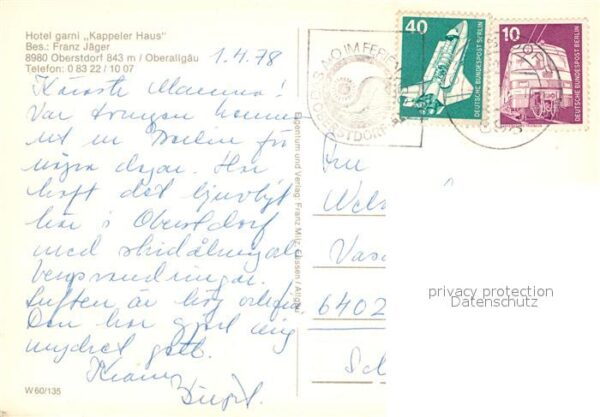 Hotel garni „Kappeler Haus"
Bes.: Franz Jäger
8980 Oberstdorf 843 m / Oberallgäu
Telefon: 0 83 22 / 10 07
1.4.78
Käraste Mamma!
Var tvungen komma
ut ur Berlin för
några dagar. Har
haft det ljuvligt
här i Oberstdorf
med skidåkning
Luften är hög
Den har gjort mig
mycket gott.
Kram
Birgit.
W 60/135
Eigentum und Verlag Franz Milz, Füssen / Allgäu
40
DEUTSCHE BUNDESPOST BERLIN
10
DEUTSCHE BUNDESPOST BERLIN
Wels
Vas
6402
Sch
privacy protection
Datenschutz